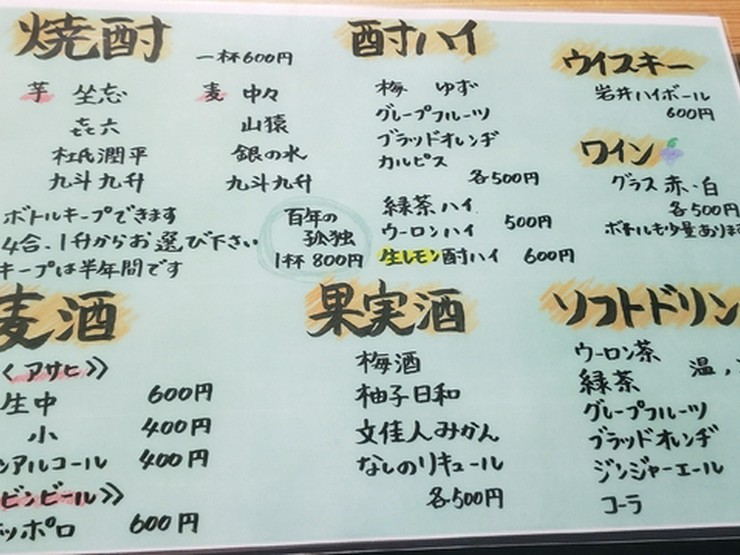 焼酎 一杯600円
芋 坐忘
㐂六
杜氏潤平
九斗九升
麦 中々
山猿
銀の水
九斗九升
ボトルキープできます
4合、1升からお選び下さい
キープは半年間です
百年の
孤独
1杯 800円
酎ハイ
梅 ゆず
グレープフルーツ
ブラッドオレンヂ
カルピス
各500円
緑茶ハイ
ウーロンハイ 500円
生レモン酎ハイ 600円
ウイスキー
岩井ハイボール
600円
ワイン
グラス 赤・白
各500円
ボトルも少量あります
麦酒
〈アサヒ》
生中 600円
小 400円
ンアルコール 400円
ビンビール》
ッポロ 600円
果実酒
梅酒
柚子日和
文佳人みかん
なしのリキュール
各500円
ソフトドリン
ウーロン茶
緑茶 温、
グレープフルーツ
ブラッドオレンヂ
ジンジャーエール
コーラ